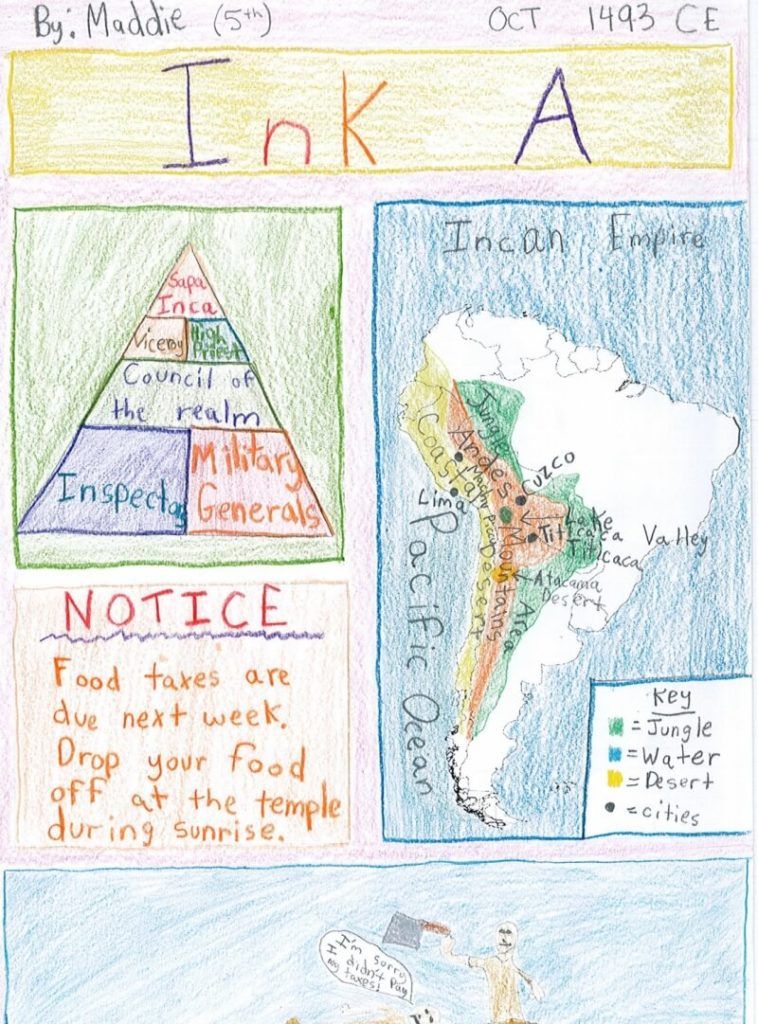 By: Maddie (5th)
OCT 1493 CE
InK A
Sapa
Inca
Viceroy
High
Priest
Council of
the realm
Inspector
Military
Generals
NOTICE
Food taxes are
due next week.
Drop your food
off at the temple
during sunrise.
Incan Empire
Jungle
Andes
Coastal
Desert
Mountains
Area
Cuzco
Lima
Lake
Titicaca
Valley
Atacama
Desert
Pacific Ocean
Key
= Jungle
= Water
= Desert
= cities
I'm sorry
I didn't pay
my taxes!